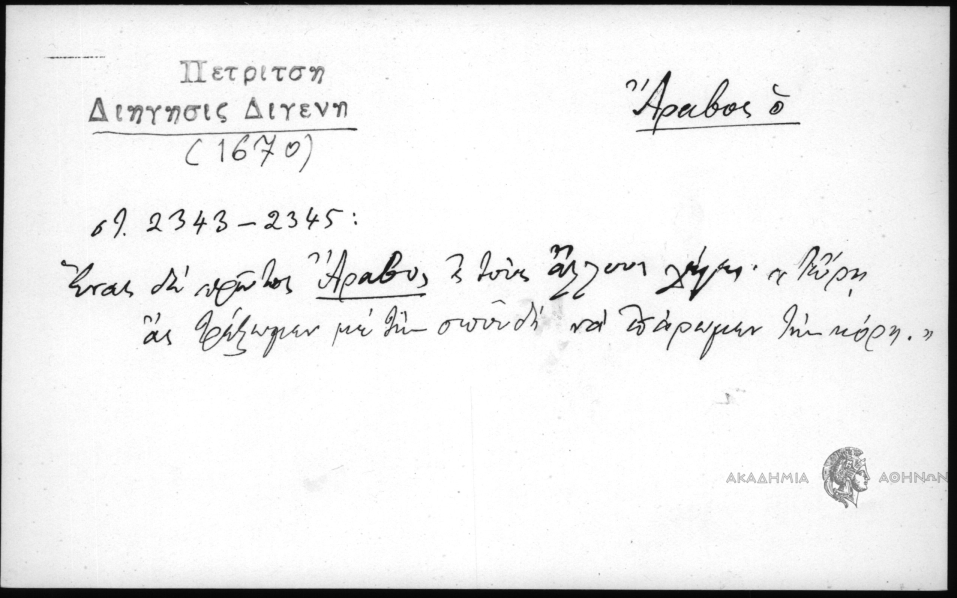 Πετρίτση
Διήγησις Διγενή
(1670)
Ἄραβος ὁ
στ. 2343-2345:
Ἕνας δὲ πρῶτος Ἄραβος τοὺς ἄλλους λέγει· «Κύρη,
ἂς τρέξωμεν μὲ τὴν σπουδὴ νὰ πάρωμεν τὴν κόρη.»
ΑΚΑΔΗΜΙΑ ΑΘΗΝΩΝ